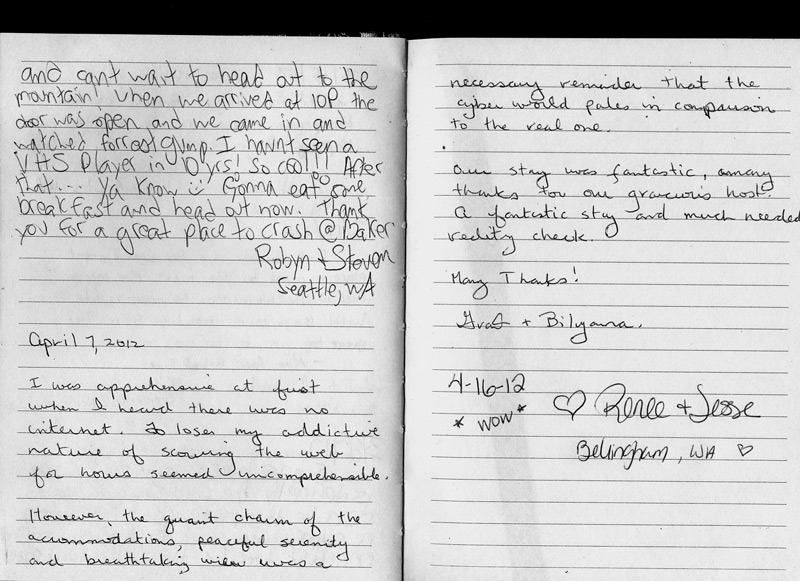 and cant wait to head out to the
mountain! When we arrived at 10P the
door was open and we came in and
watched forrest gump. I havnt seen a
VHS Player in 10 yrs! So COOl!!! After
that... ya know Gonna eat some
breakfast and head out now. Thank
you for a great place to crash @ Baker
Robyn + Steven
Seattle, WA
April 7, 2012
I was apprehensive at first
when I heard there was no
internet. To lose my addictive
nature of scouring the web
for hours seemed unicomprehensible.
However, the quaint charm of the
accommodations, peaceful serenity
and breathtaking view was a
necessary reminder that the
cyber world pales in comparison
to the real one.
Our stay was fantastic, many
thanks for our gracious host.
A fantastic stay and much needed
reality check.
Many Thanks!
+ Bilyana.
4-16-12
* WOW *
Renee + Jesse
Bellingham, WA